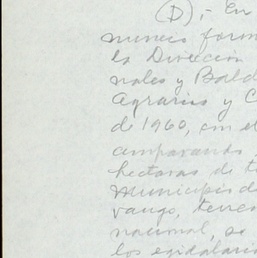 (D),- En
muneis form
la Dirección
nales y Bald
Agrarios y C
de 1960, con el
amparando
hectaras de t
Municipio d
vango, terre
nacional, se
los ejidatario